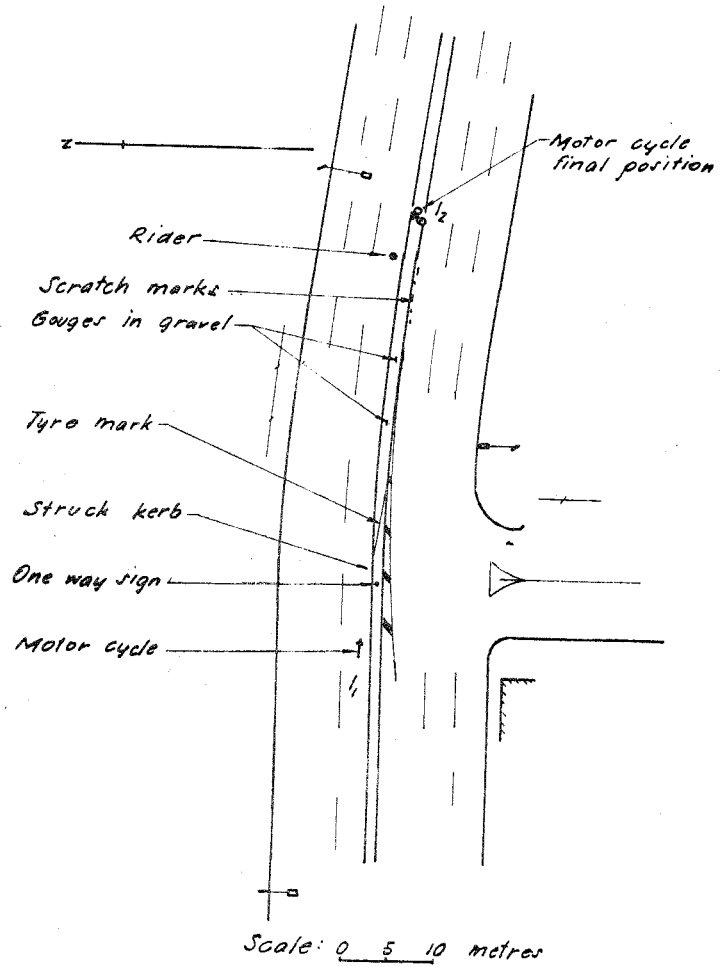 Z
Motor cycle
final position
1/2
Rider
Scratch marks
Gouges in gravel
Tyre mark
Struck kerb
One way sign
Motor cycle
1/1
Scale: 0 5 10 metres